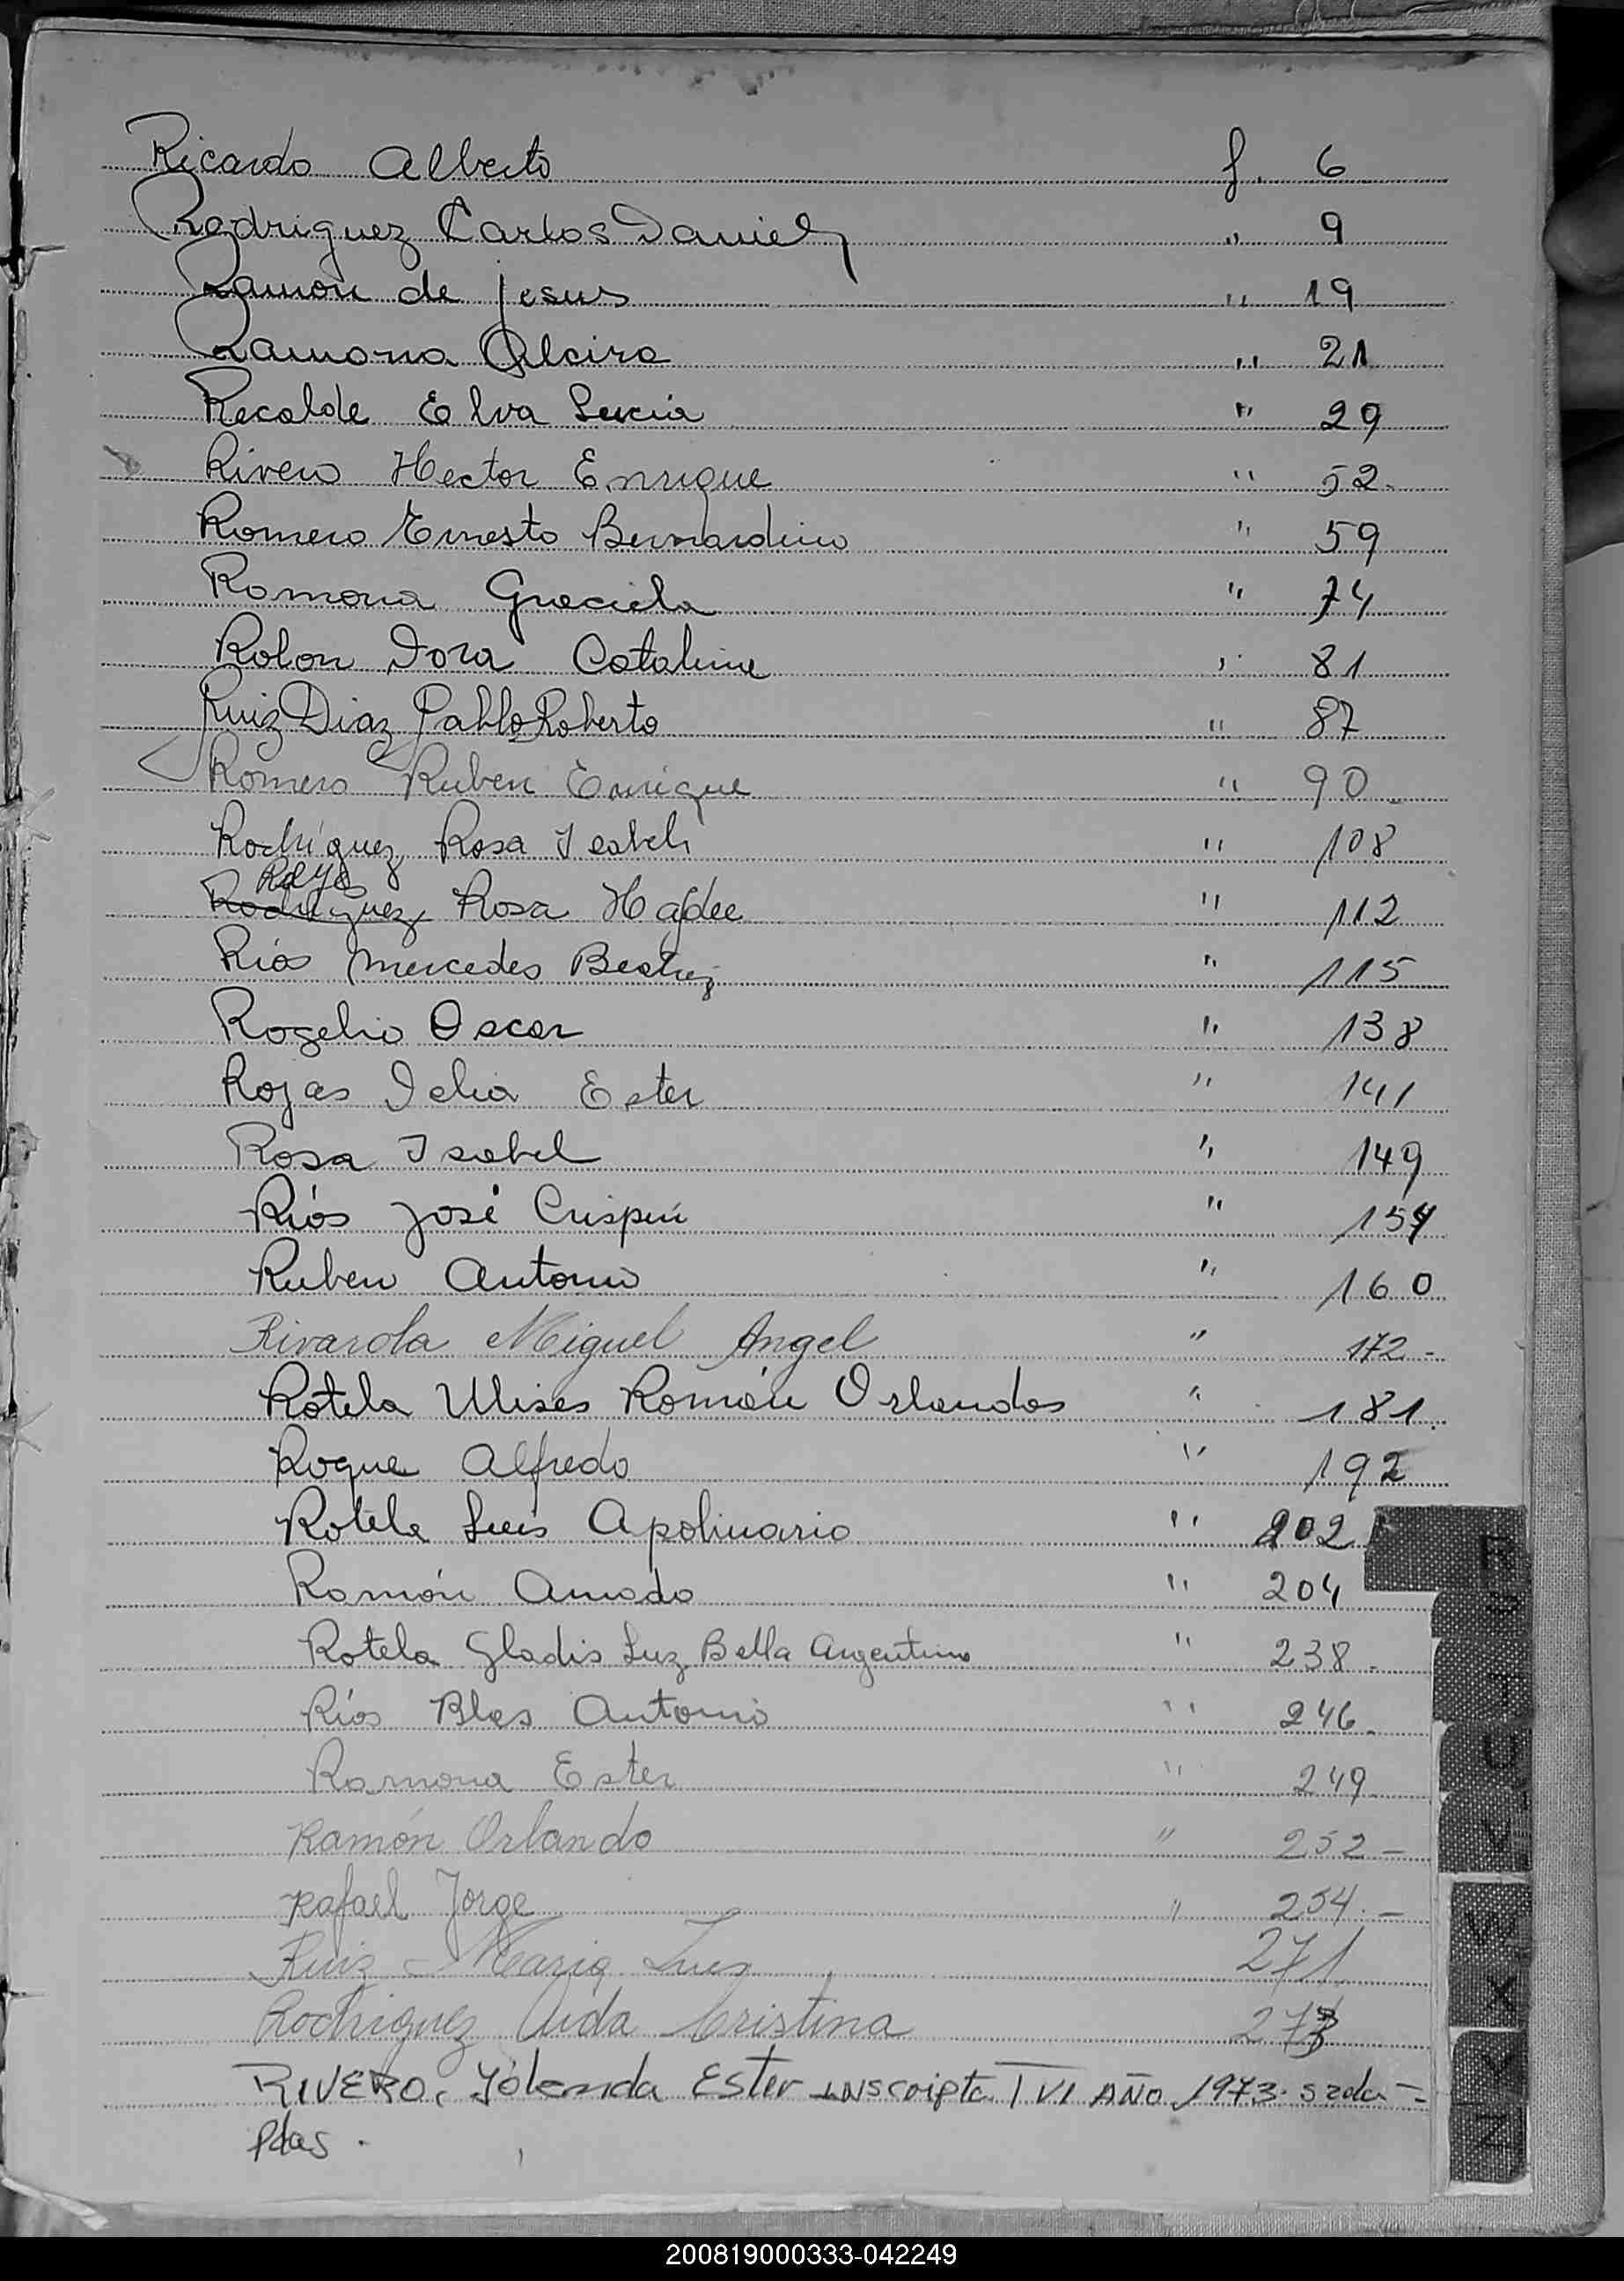 Ricardo Alberto f. 6
Rodriguez Carlos Daniel " 9
Ramón de Jesus " 19
Ramona Alcira " 21
Recalde Elva Lucia " 29
Rivero Hector Enrique " 52.
Romero Ernesto Bernardino " 59
Ramona Graciela " 74
Rolon Dora Catalina " 81
Ruiz Diaz Pablo Roberto " 87
Romero Ruben Enrique " 90
Rodriguez Rosa Isabel " 108
Rodriguez Rosa Haydee " 112
Ríos Mercedes Beatriz " 115
Rogelio Oscar " 138
Rojas Delia Ester " 141
Rosa Isabel " 149
Ríos José Crispin " 154
Ruben Antonio " 160
Rivarola Miguel Angel " 172 -
Rotela Ulises Román Orlandos " 181.
Roque Alfredo " 192
Rotela Luis Apolinario " 202
Ramón Amado " 204
Rotela Gladis Luz Bella Argentina " 238 -
Ríos Blas Antonio " 246.
Ramona Ester " 249.
Ramón Orlando " 252 -
Rafael Jorge " 254. -
Ruiz Maria Luz 271
Rodriguez Aida Cristina 273
RIVERO, Yolanda Ester inscripta T VI AÑO 1973.
Pdas.
R
U
V
W
X
Y
Z
200819000333-042249